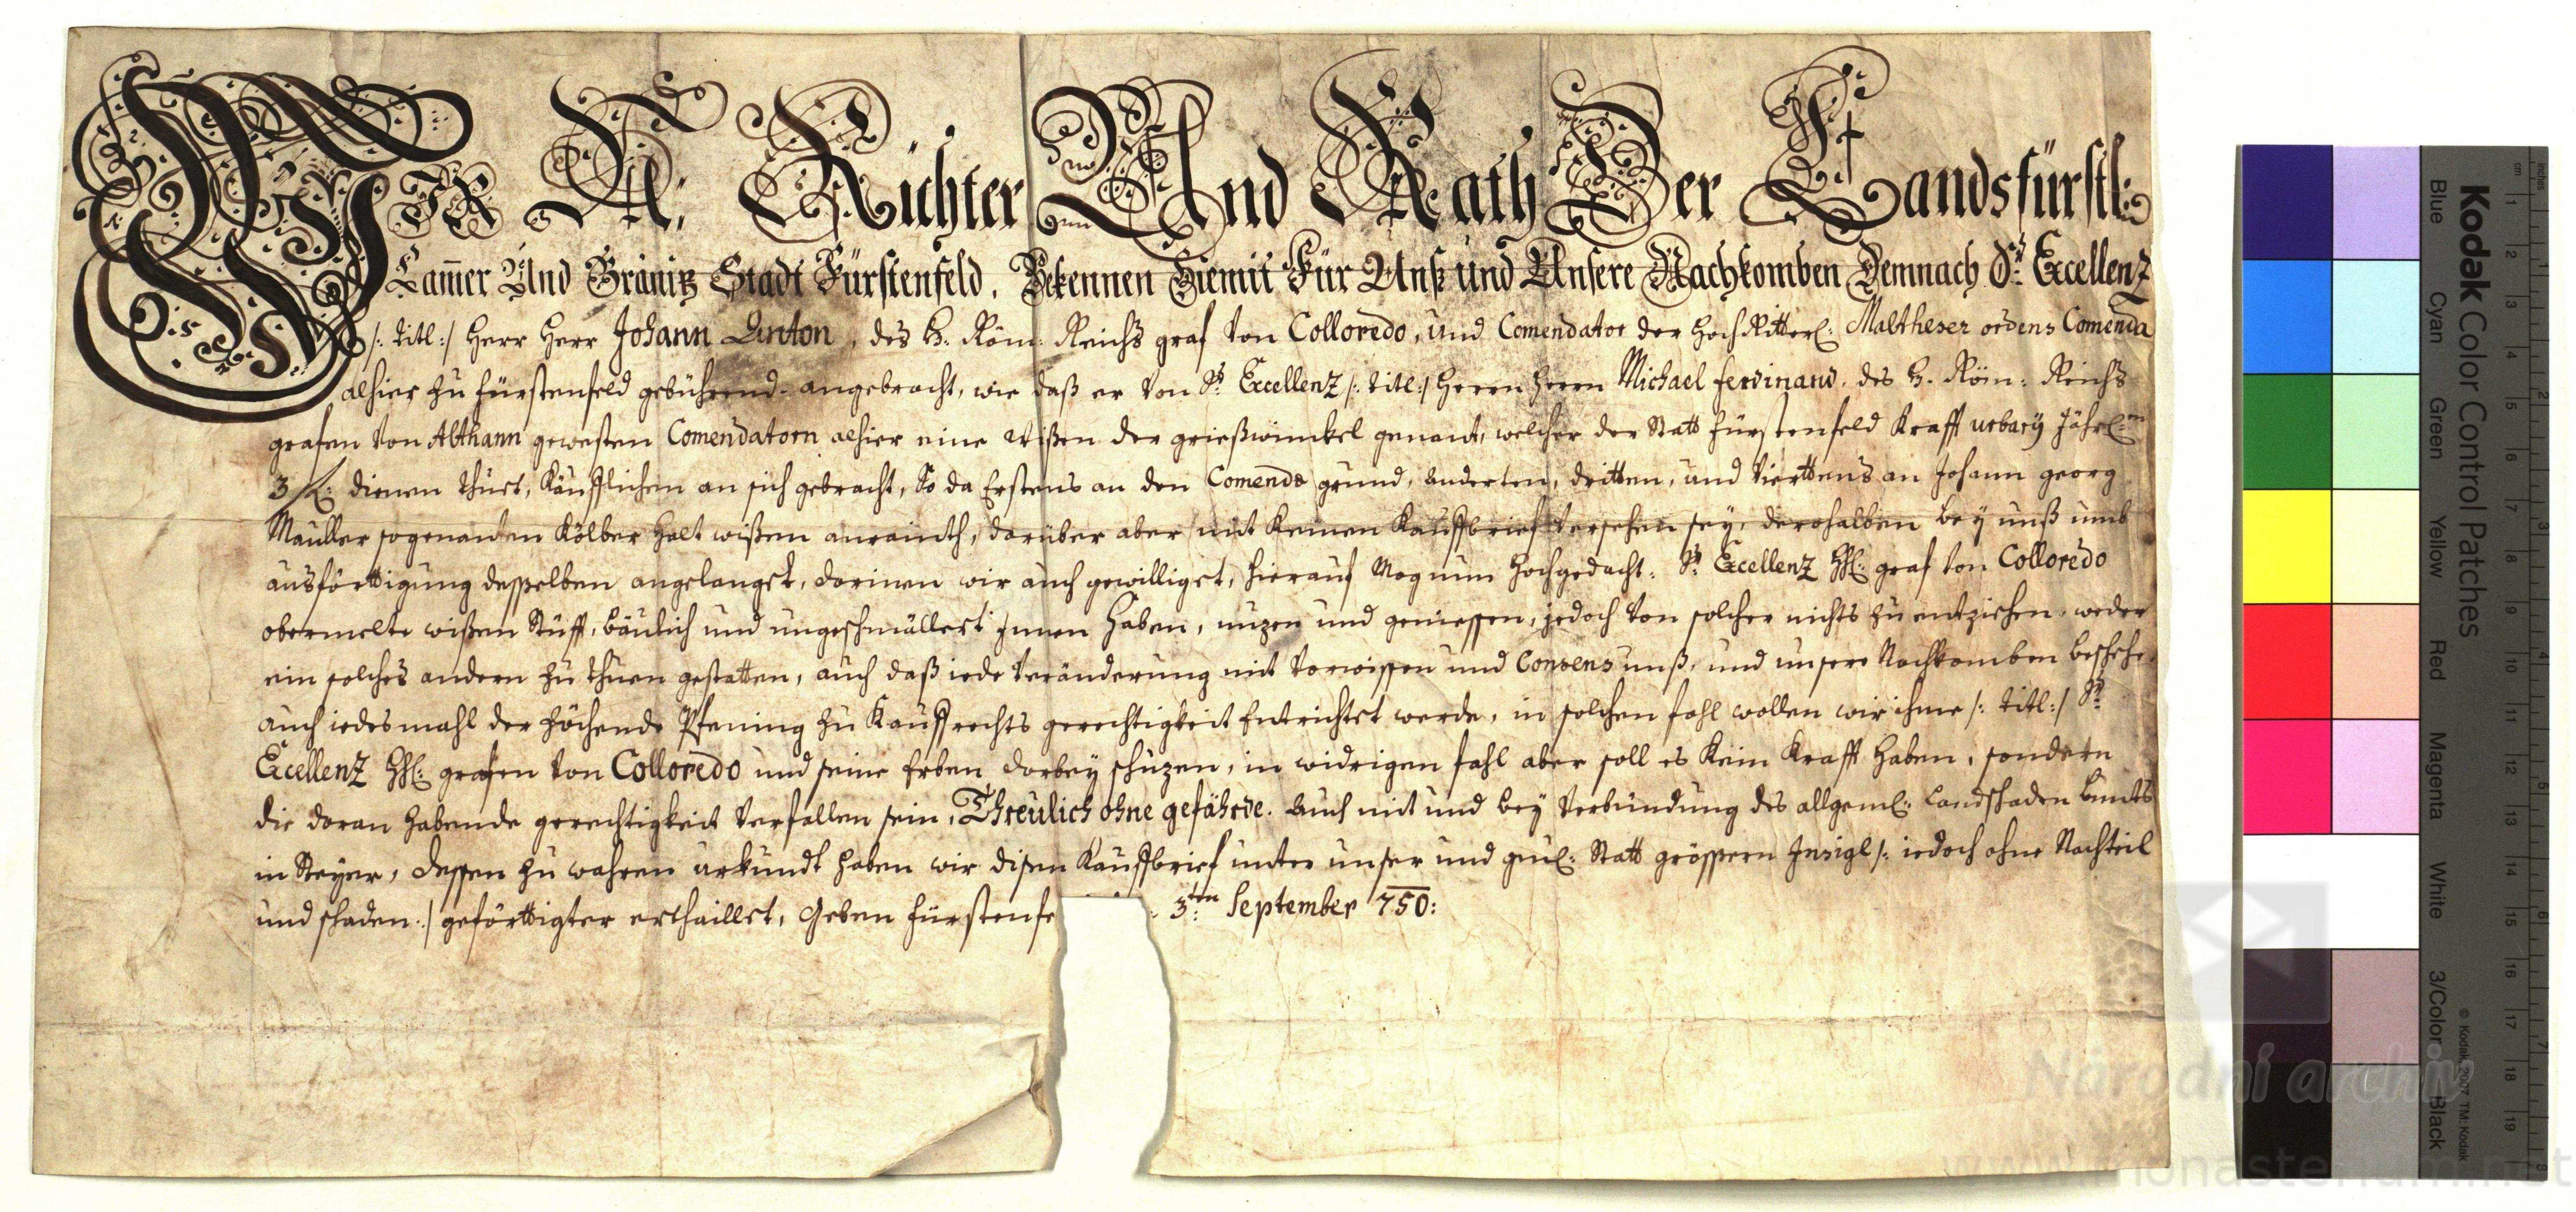 WIR N: Richter Und Rath Der Landsfürstl:
Camer Und Gränitz Stadt Fürstenfeld. Bekennen Hiemit Für Unß und Unsere Nachkomben Demnach Sr: Excellenz
/: titl :/ Herr Herr Johann Anton, des H: Röm: Reichs graf von Colloredo, und Comendator der hoch Ritterl: Maltheser ordens Comenda
alhier zu fürstenfeld gebührend angebracht, wie daß er von Sr: Excellenz /: titl :/ Herrn Herrn Michael ferdinand, des H. Röm: Reichs
grafen von Althann gewesten Comendatorn alhier eine wißen der grießwinkel genant, welcher der Statt fürstenfeld Krafft urbary Jährl:
3 dienen thuet, Käufflichen an sich gebracht, So da Erstens an den Comende grund, anderten, dritten, und Viertens an Johann georg
Maüller sogenanten Kölber halt wißen anrainth, darüber aber mit Keinen Kauffbrief versehen sey, derohalben bey unß umb
ausförttigung desselben angelanget, darinen wir auch gewilliget, hierauf Mag nun hochgedacht: Sr: Excellenz HH: graf von Colloredo
obermelte wißen Stüff, bäulich und ungeschmällert Innen haben, nuzen und geniessen, jedoch von solcher nichts zu entziehen, weder
ein solches andern zu thuen gestatten, auch daß iede veränderung mit vorwissen und Consens unß, und unsere Nachkomben beschehe,
auch iedesmahl der zöchende Pfening zu Kauffrechts gerechtigkeit Entrichtet werde, in solchen fahl wollen wir ihme /: titl :/ Sr:
Excellenz HH: grafen von Colloredo und seine Erben darbey schuzen, in widrigen fahl aber soll es Kein Krafft haben, sondern
die daran habende gerechtigkeit verfallen sein, Threulich ohne gefährde. Auch mit und bey verbündung des allgeml: Landschaden bunts
in Steyer, dessen zu wahren urkundt haben wir disen Kauffbrief unter unser und gml: Statt grössern Insigl /: iedoch ohne Nachteil
und schaden :/ geförttigter erthaillet, Geben fürstenfe 3ten: September 750:
Kodak Color Control Patches
Blue Cyan Green Yellow Red Magenta White 3/Color Black
© Kodak, 2007 TM: Kodak
cm 1 2 3 4 5 6 7 8 9 10 11 12 13 14 15 16 17 18 19
inches 1 2 3 4 5 6 7 8
Národní archiv
www.monasterium.net